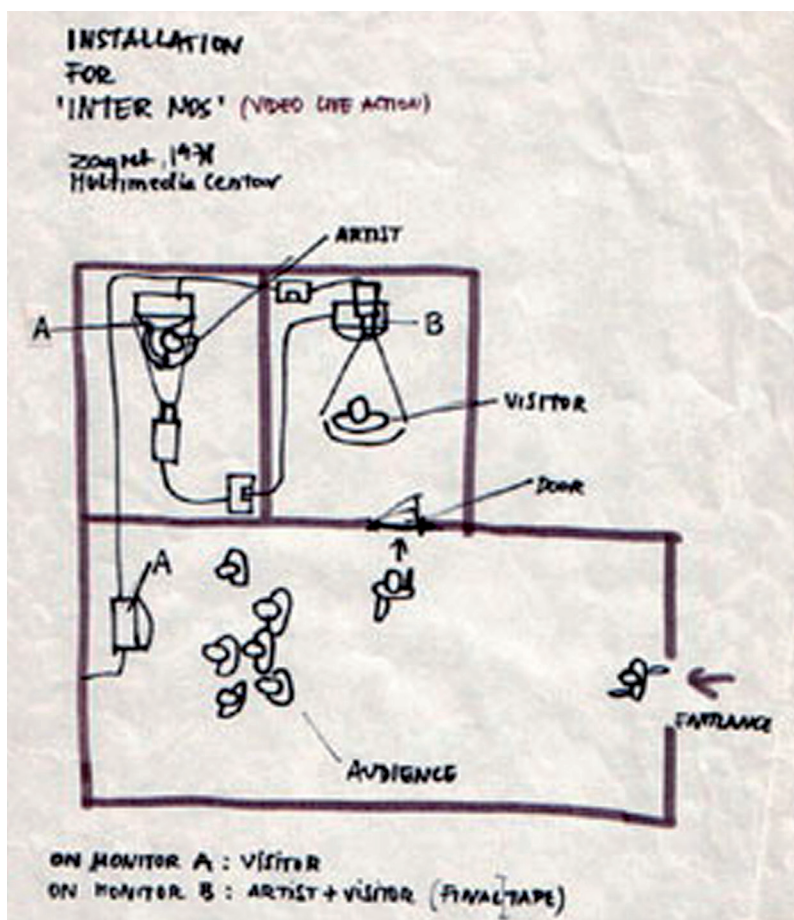 INSTALLATION
FOR
'INTER NOS' (VIDEO LIVE ACTION)
Zagreb, 1978
Multimedia Centar
ARTIST
A
B
VISITOR
DOOR
A
ENTRANCE
AUDIENCE
ON MONITOR A : VISITOR
ON MONITOR B : ARTIST + VISITOR (FINAL TAPE)